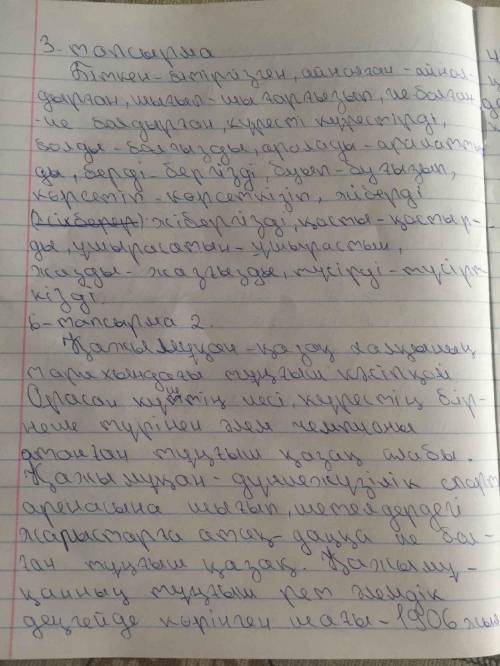 3-тапсырма
Біткен-бітірізген, айналған-айнал-
дырған, шығып-шығарғызып, ие болған
-ие болдырған, күресті күрестірді,
болды-болғызды, аралады-аралатты
ды, берді-бергізді, буып-буғызып,
көрсетіп-көрсеткізіп, жіберді
жібергізді, қосты-қостыр-
ды, ұшырасатын-ұшырастын,
жазды-жазғызды, түсірді-түсірт
кізді.
6-тапсырма 2.
Қажымұқан-қазақ халқының
тарихындағы тұңғыш кәсіпқой
Орасан күштің иесі, күрестің бір-
неше түрінен әлем чемпионы
атанған тұңғыш қазақ алыбы.
Қажымұқан-дүниежүзілік спорт
аренасына шығып, шетелдердегі
жарыстарға атақ-даңқа ие бол-
ған тұңғыш қазақ. Қажымұ-
қанның тұңғыш рет әлемдік
деңгейде көрінген шағы-1906 жыл